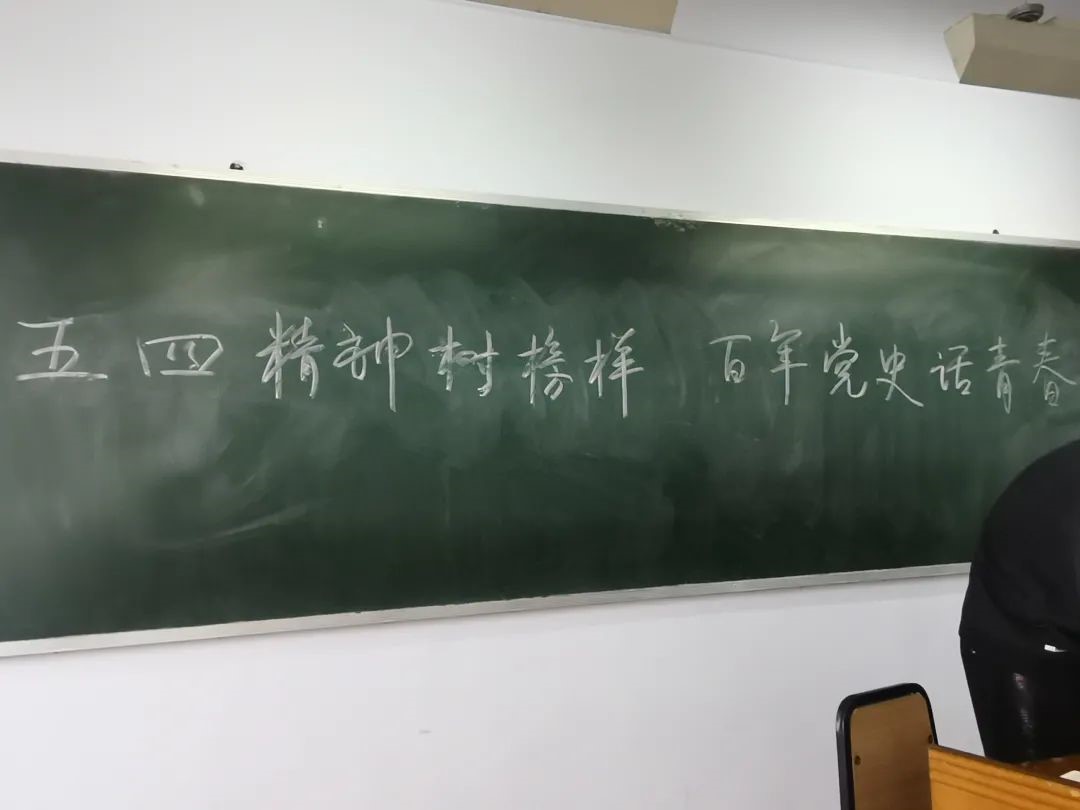 五四精神树榜样 百年党史话青春